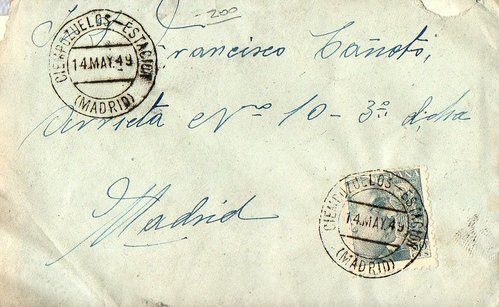 200
CIEMPOZUELOS-ESTACION
14.MAY.49
(MADRID)
Francisco Cañoto,
Arrieta Nº 10-3º dcha
Madrid
CIEMPOZUELOS-ESTACION
14.MAY.49
(MADRID)